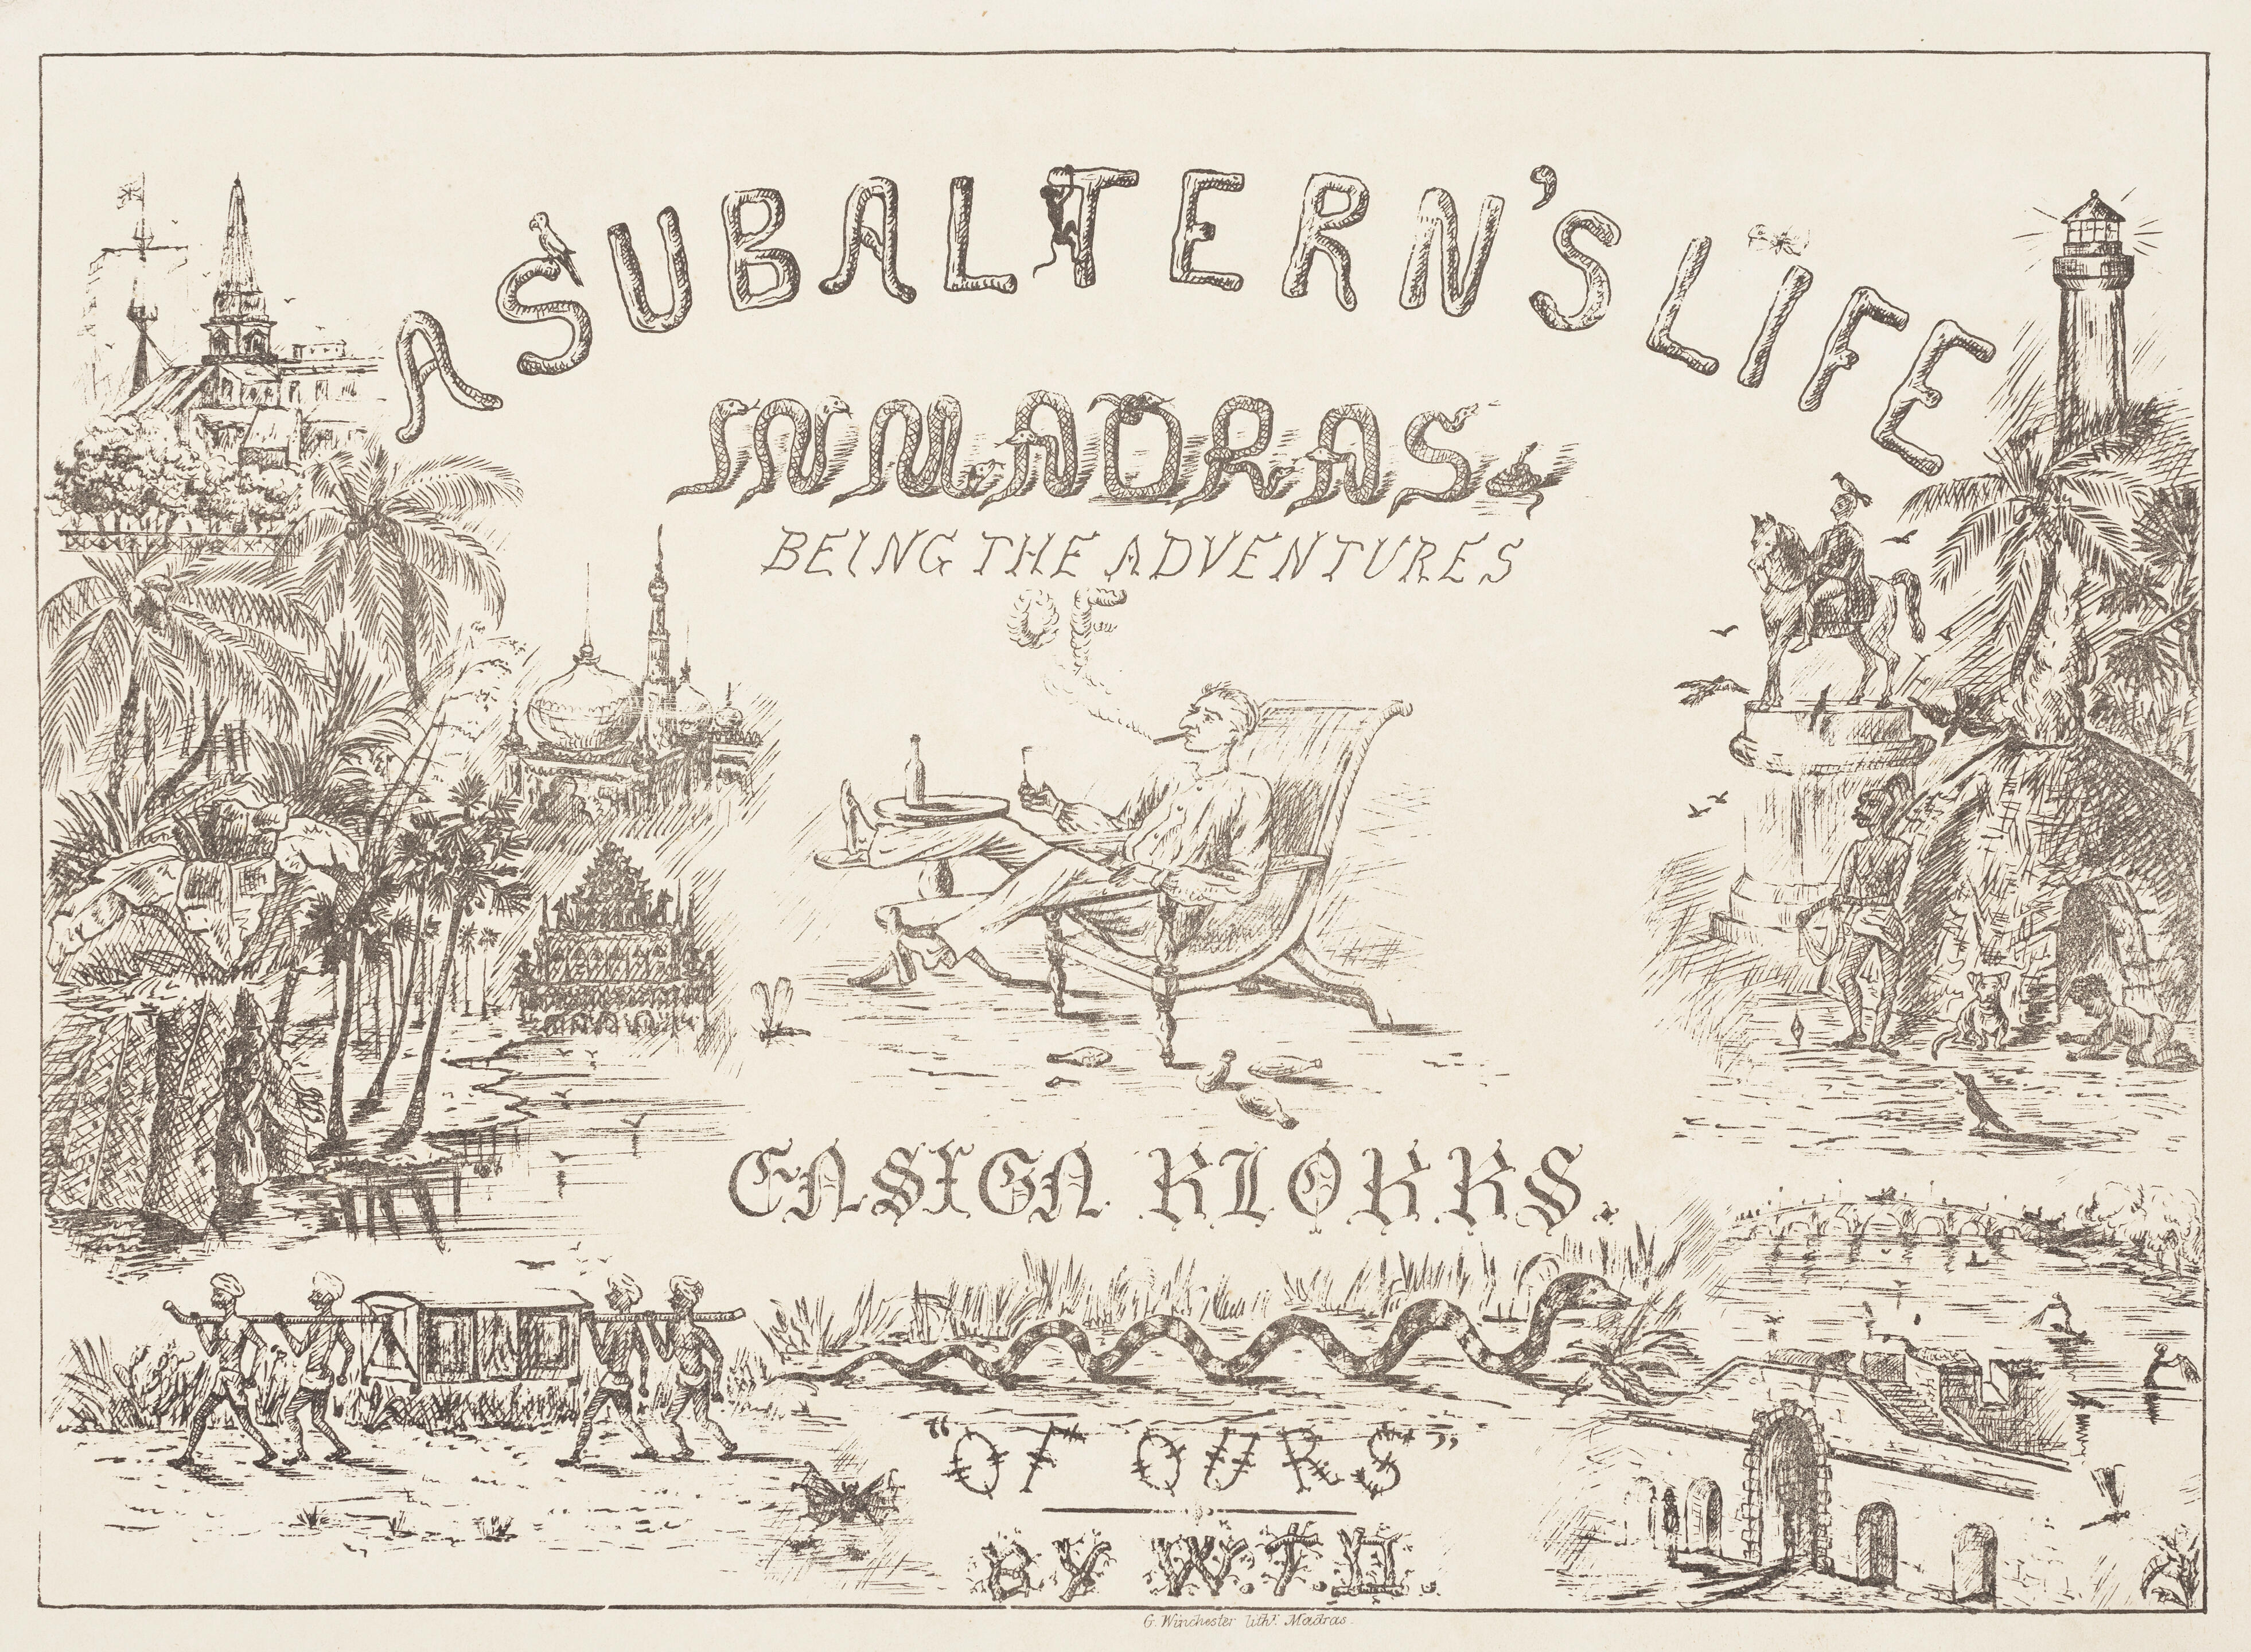 A SUBALTERN'S LIFE
IN MADRAS.
BEING THE ADVENTURES
OF
ENSIGN KLOKKS.
"OF OURS"
BY W.T.
G. Winchester lithr. Madras.